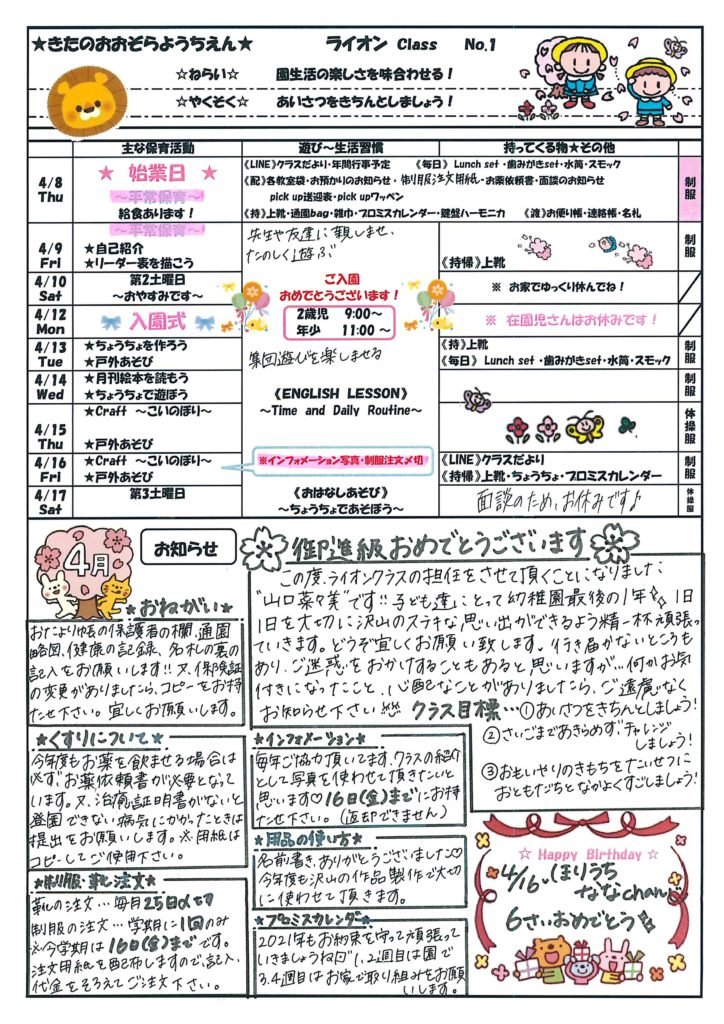 ★きたのおおぞらようちえん★ ライオン Class No.1
☆ねらい☆ 園生活の楽しさを味合わせる！
☆やくそく☆ あいさつをきちんとしましょう！
主な保育活動 遊び～生活習慣 持ってくる物★その他
4/8 Thu
★ 始業日 ★
～平常保育～
給食あります！
《LINE》クラスだより・年間行事予定 《毎日》 Lunch set ・歯みがきset・水筒・スモック
《配》各教室袋・お預かりのお知らせ・制服注文用紙・お薬依頼書・面談のお知らせ
pick up送迎表・pick upワッペン
《持》上靴・通園bag・雑巾・プロミスカレンダー・鍵盤ハーモニカ 《渡》お便り帳・連絡帳・名札
制服
4/9 Fri
～平常保育～
★自己紹介
★リーダー表を描こう
先生や友達に親しませ、
たのしく遊ぶ
《持帰》上靴
制服
4/10 Sat
第2土曜日
～おやすみです～
※ お家でゆっくり休んでね！
ご入園
おめでとうございます！
2歳児 9:00～
年少 11:00 ～
4/12 Mon
入園式
※ 在園児さんはお休みです！
4/13 Tue
★ちょうちょを作ろう
★戸外あそび
集団遊びを楽しませる
《持》上靴
《毎日》 Lunch set ・歯みがきset・水筒・スモック
制服
4/14 Wed
★月刊絵本を読もう
★ちょうちょで遊ぼう
《ENGLISH LESSON》
～Time and Daily Routine～
制服
4/15 Thu
★Craft ～こいのぼり～
★戸外あそび
体操服
4/16 Fri
★Craft ～こいのぼり～
★戸外あそび
※インフォメーション写真・制服注文〆切
《LINE》クラスだより
《持帰》上靴・ちょうちょ・プロミスカレンダー
制服
4/17 Sat
第3土曜日
《おはなしあそび》
～ちょうちょであそぼう～
面談のため、お休みです♪
体操服
4月
お知らせ
★おねがい★
おたより帳の保護者の欄、通園
略図、健康の記録、名札の裏の
記入をお願いします!!又、保険証
の変更がありましたら、コピーをお持
たせ下さい。宜しくお願いします。
御進級おめでとうございます
この度、ライオンクラスの担任をさせて頂くことになりました
"山口菜々美"です!!子ども達にとって幼稚園最後の1年☆1日
1日を大切に沢山のステキな思い出ができるよう精一杯頑張っ
ていきます。どうぞ宜しくお願い致します。行き届かないところも
あり、ご迷惑をおかけすることもあると思いますが…何かお気
付きになったこと、心配なことがありましたら、ご遠慮なく
お知らせ下さい クラス目標…①あいさつをきちんとしましょう！
②さいごまであきらめず、チャレンジ
しましょう！
③おもいやりのきもちをたいせつに
おともだちとなかよくすごしましょう！
★くすりについて★
今年度もお薬を飲ませる場合は
必ず、お薬依頼書が必要となって
います。又、治癒証明書がないと
登園できない病気にかかったときは
提出をお願いします。※用紙は
コピーしてご使用下さい。
★制服・靴注文★
靴の注文…毎月25日〆切
制服の注文…学期に1回のみ
※今学期は16日(金)までです。
注文用紙を配布しますので、記入、
代金をそろえてご注文下さい。
★インフォメーション★
毎年ご協力頂いてます、クラスの紹介
として写真を使わせて頂きたいと
思います♡16日(金)までにお持
たせ下さい。(返却できません)
★用品の使い方★
名前書き、ありがとうございました♡
今年度も沢山の作品製作で大切
に使わせて頂きます。
★プロミスカレンダー★
2021年もお約束を守って頑張っ
ていきましょうね 1、2週目は園で
3.4週目はお家で取り組みをお願
いします。
☆ Happy Birthday ☆
4/16 ほりうち
ななchan
6さいおめでとう